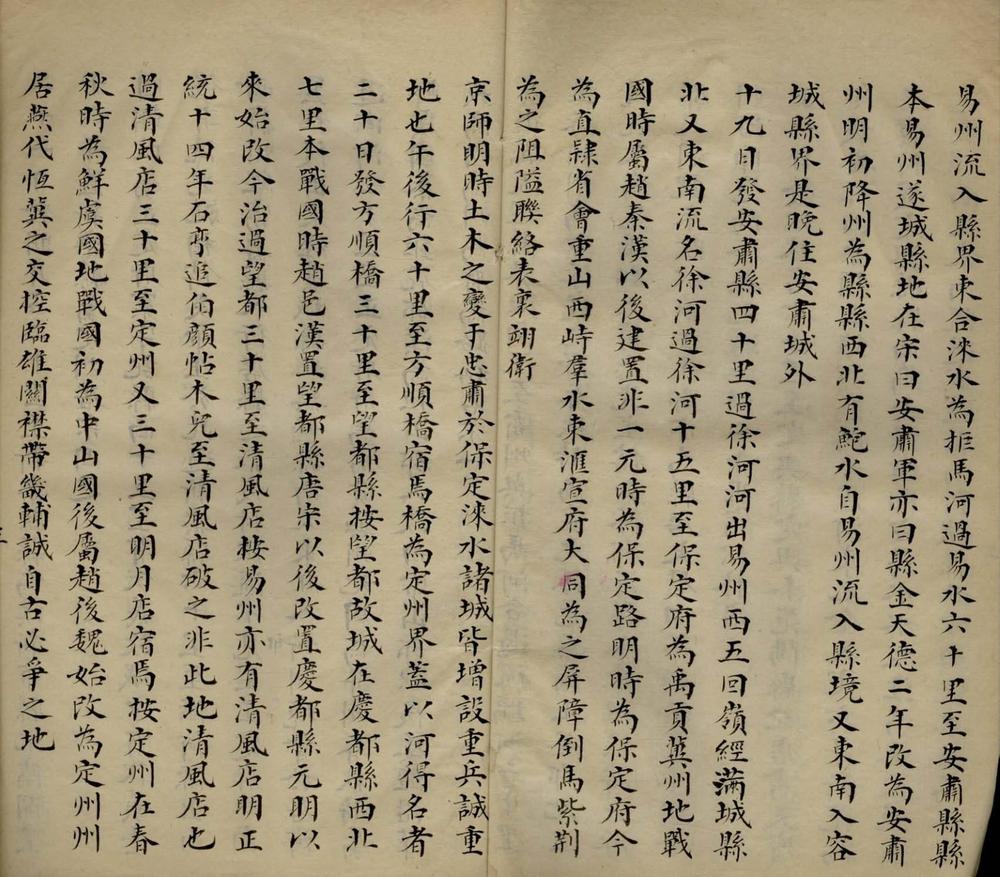 易州流入縣界東合淶水為拒馬河過易水六十里至安肅縣縣
本易州遂城縣地在宋曰安肅軍亦曰縣金天德二年改為安肅
州明初降州為縣縣西北有鮑水自易州流入縣境又東南入容
城縣界是晚住安肅城外
十九日發安肅縣四十里過徐河河出易州西五回嶺經滿城縣
北又東南流名徐河過徐河十五里至保定府為禹貢冀州地戰
國時屬趙秦漢以後建置非一元時為保定路明時為保定府今
為直隸省會重山西峙羣水東滙宣府大同為之屏障倒馬紫荆
為之阻隘聯絡表裏翊衛
京師明時土木之變于忠肅於保定淶水諸城皆增設重兵誠重
地也午後行六十里至方順橋宿焉橋為定州界蓋以河得名者
二十日發方順橋三十里至望都縣按望都故城在慶都縣西北
七里本戰國時趙邑漢置望都縣唐宋以後改置慶都縣元明以
來始改今治過望都三十里至清風店按易州亦有清風店明正
統十四年石亨追伯顏帖木兒至清風店破之非此地清風店也
過清風店三十里至定州又三十里至明月店宿焉按定州在春
秋時為鮮虞國地戰國初為中山國後屬趙後魏始改為定州州
居燕代恆冀之交控臨雄關襟帶畿輔誠自古必爭之地